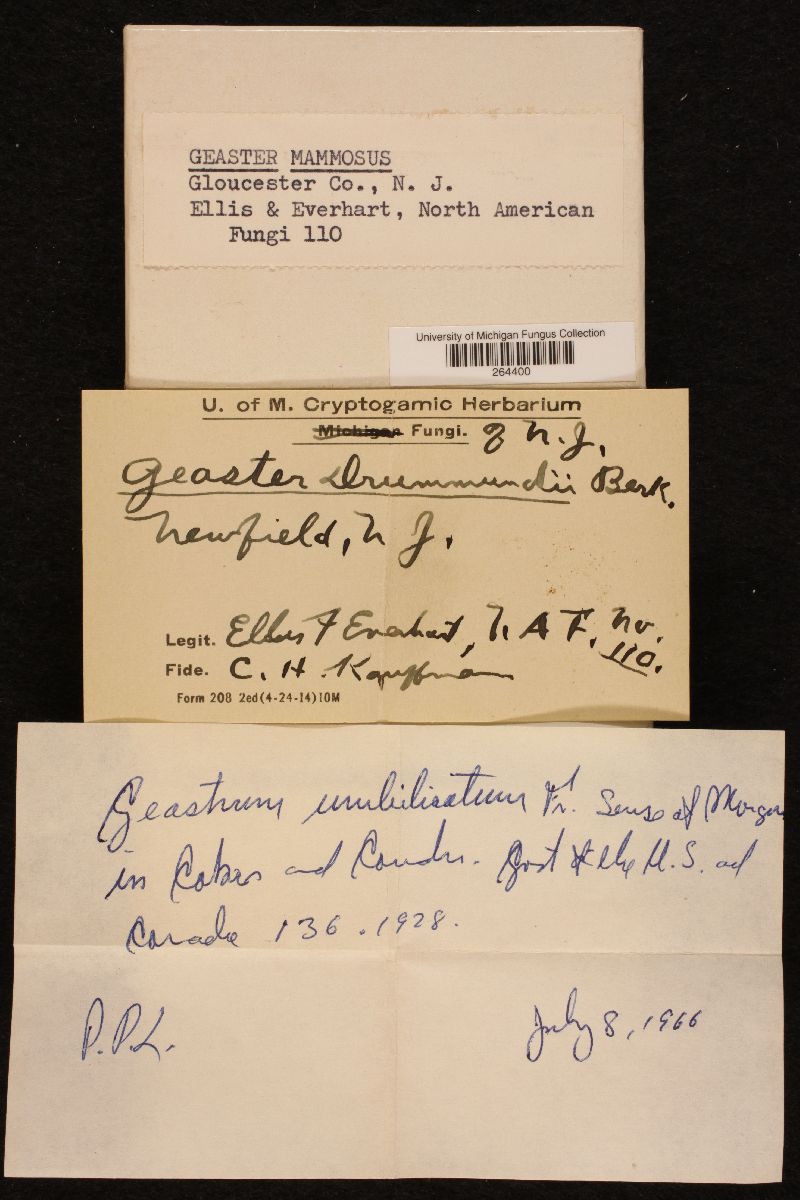 GEASTER MAMMOSUS
Gloucester Co., N. J.
Ellis & Everhart, North American
Fungi 110
University of Michigan Fungus Collection
264400
U. of M. Cryptogamic Herbarium
Michigan Fungi. of N. J.
Geaster Drummundii Berk.
Newfield, N J.
Legit. Ellis & Everhart, N A F. No. 110.
Fide. C. H. Kauffman
Form 208 2ed(4-24-14)10M
Geastrum umbilicatum Fr. Sense of Morgan
in Coker and Couch. Gast of the U. S. ad
Canada 136. 1928.
P. P. L.
July 8, 1966